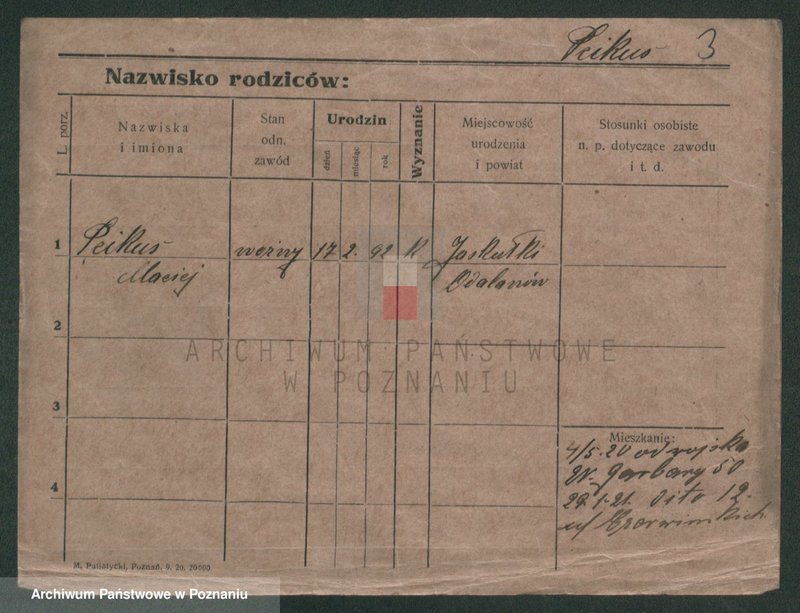 Peikus 3
Nazwisko rodziców:
L. porz.
Nazwiska
i imiona
Stan
odn.
zawód
Urodzin
dzień
miesiąc
rok
Wyznanie
Miejscowość
urodzenia
i powiat
Stosunki osobiste
n. p. dotyczące zawodu
i t. d.
1 Peikus woźny 17 2. 92 K Jaskułki
Maciej Odolanów
2
ARCHIWUM PAŃSTWOWE
W POZNANIU
3
Mieszkanie:
4/5.20 od wojska
Garbary 50
4
1. 21. 12.
M. Putiatycki, Poznań, 9. 20. 20000
Archiwum Państwowe w Poznaniu